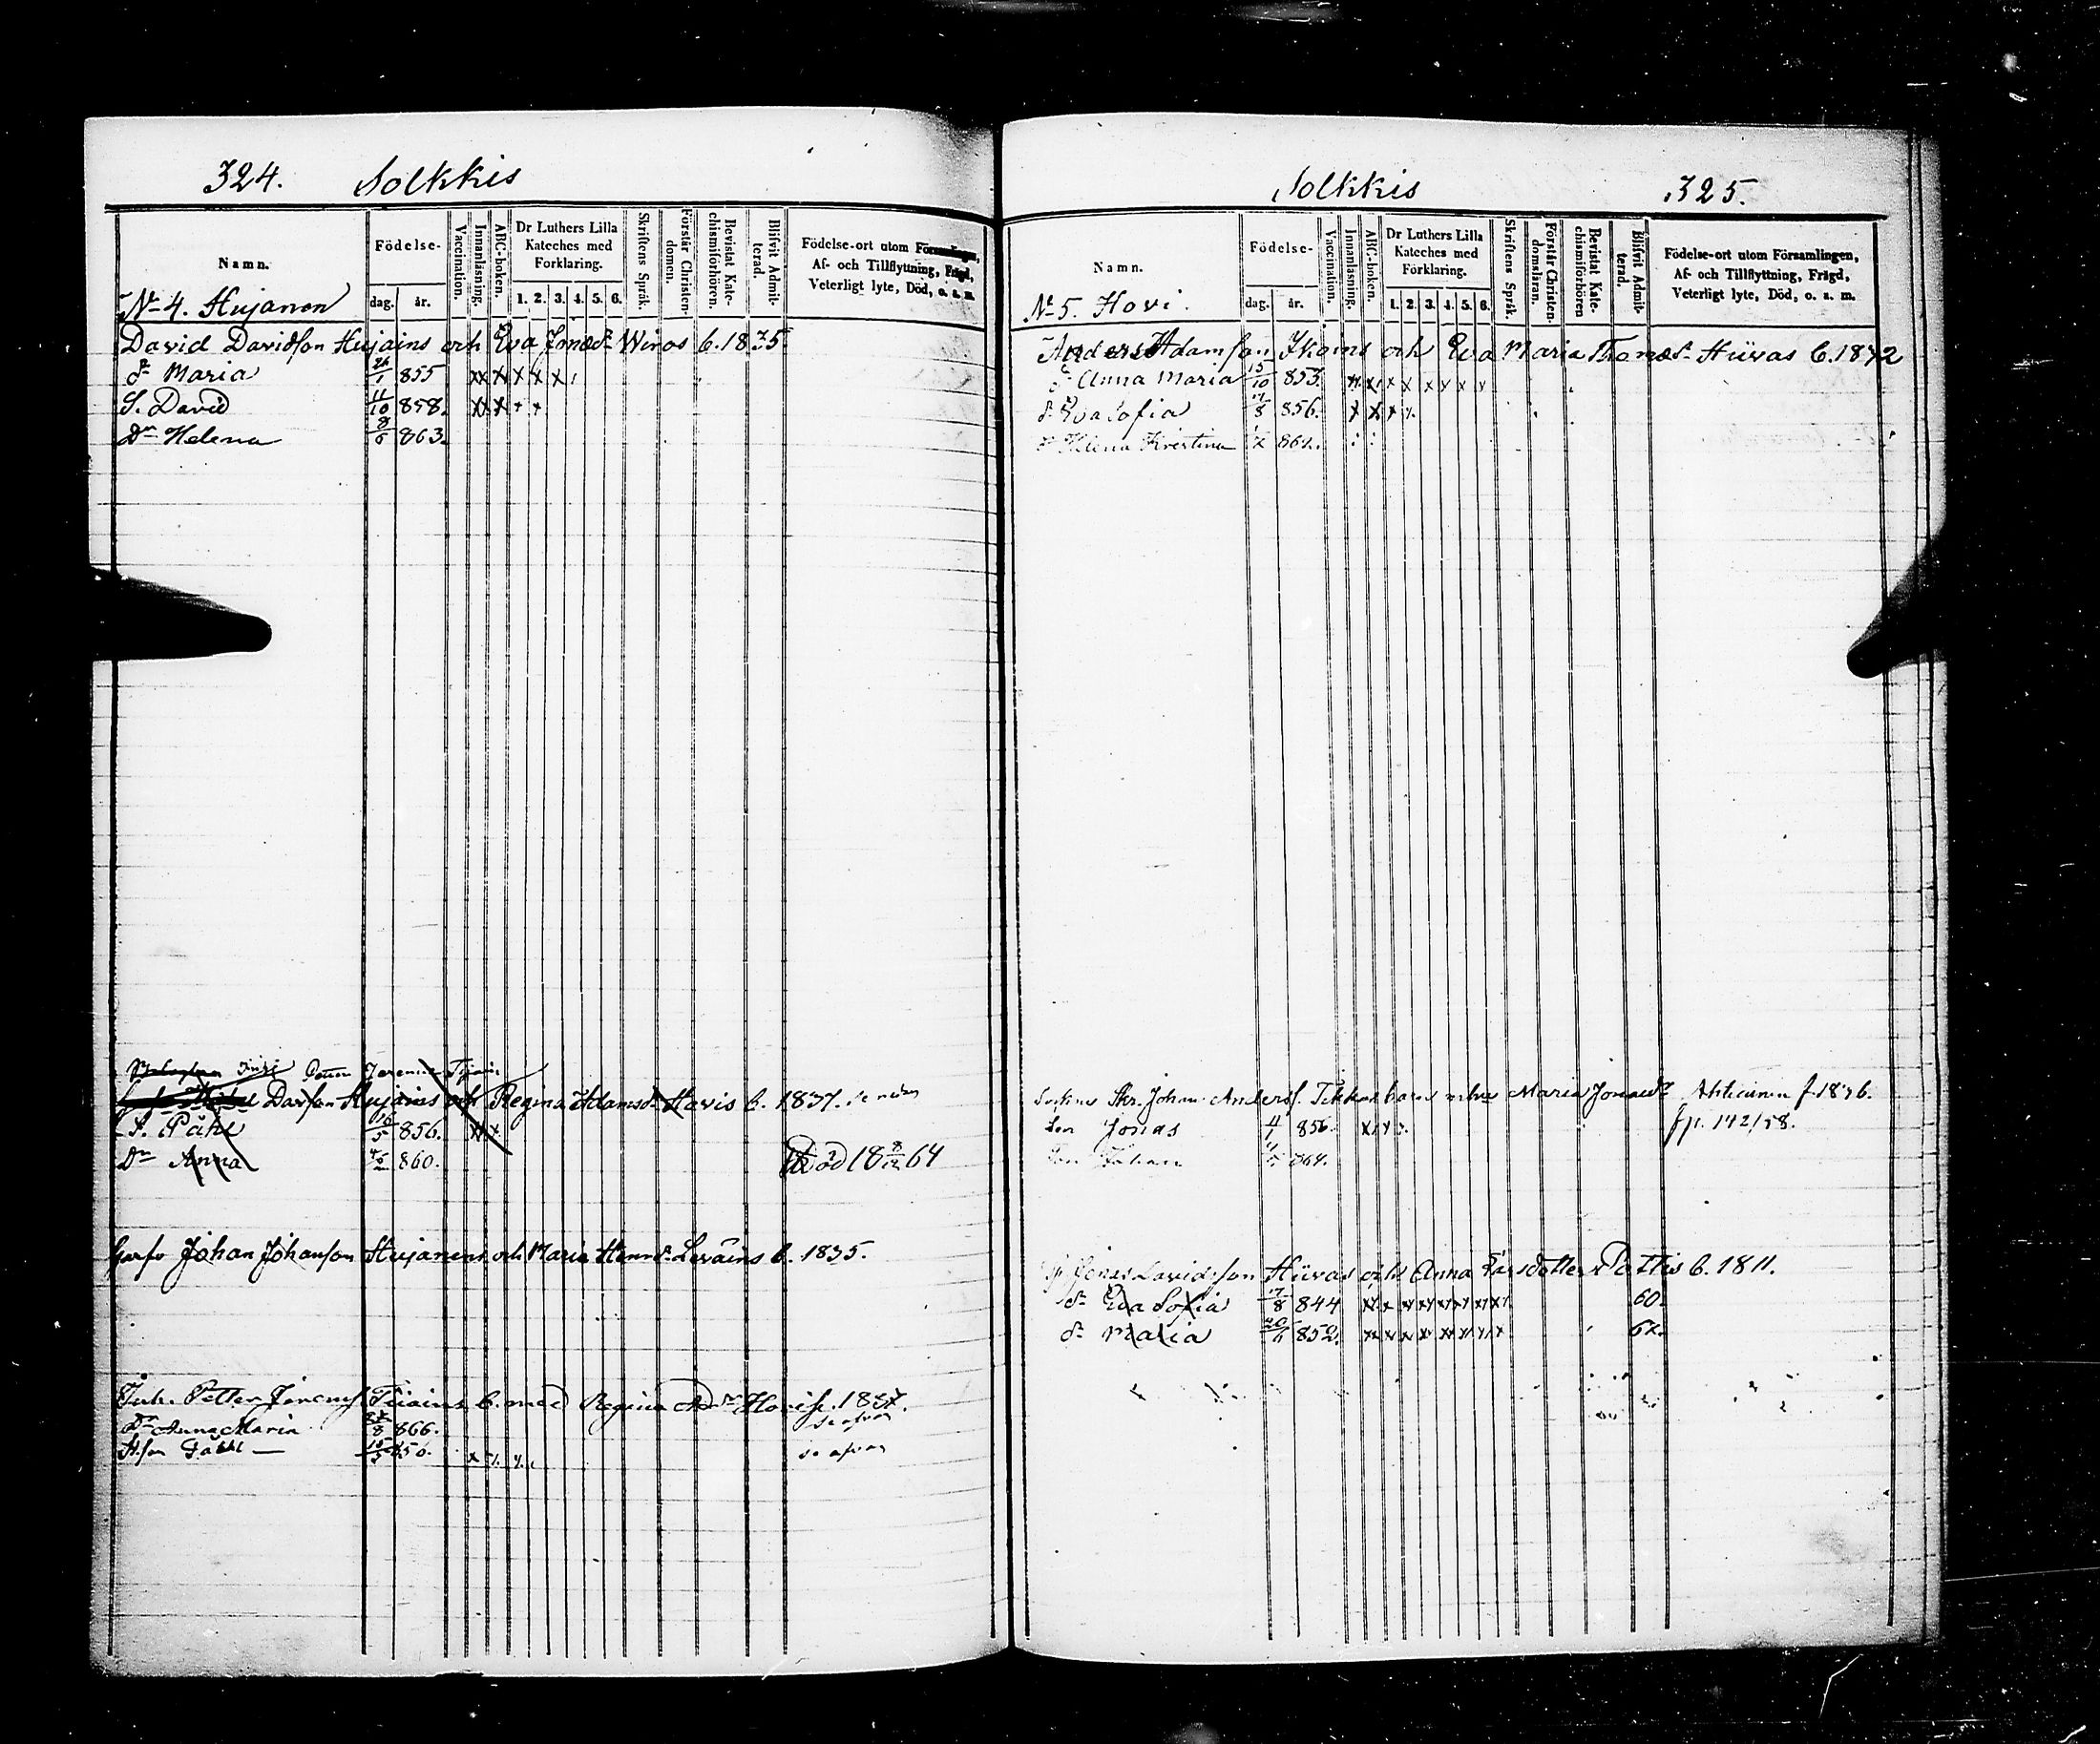 324. Solkkis
Namn.
Födelse-
dag. år.
Vaccination.
Innanläsning.
ABC-boken.
Dr Luthers Lilla
Kateches med
Förklaring.
1. 2. 3. 4. 5. 6.
Skriftens Språk.
Förstår Christen-
domen.
Bevistat Kate-
chismiförhören.
Blifvit Admit-
terad.
Födelse-ort utom Församlingen,
Af- och Tillflyttning, Frägd,
Veterligt lyte, Död, o. s. m.
No 4. Hujanen
David Davidson Hujains och Eva Jonaed. Wiros b. 1835
dr Maria 26/1 855 xx x x x x
S. David 11/10 858. xx x x x
Dr Helena 8/6 863.
Petter Jeremias
Davson Hujains och Regina Adamsd. Hovis b. 1837. se nedan
S. Påhl 16/5 856. x x
Dr Anna 860. Död 18 8/12 64
Johan Johanson Hujanens och Maria Henrsd. Leväins b. 1835.
Inh. Petter b. med Regina Hovis 1837.
Dr Anna Maria 866. se ofvan
856. se ofvan
Solkkis 325.
Namn.
Födelse-
dag. år.
Vaccination.
Innanläsning.
ABC-boken.
Dr Luthers Lilla
Kateches med
Förklaring.
1. 2. 3. 4. 5. 6.
Skriftens Språk.
Förstår Christen-
domsläran.
Bevistat Kate-
chismiförhören
Blifvit Admit-
terad.
Födelse-ort utom Församlingen,
Af- och Tillflyttning, Frägd,
Veterligt lyte, Död, o. s. m.
No 5. Hovi.
Anders Adamson Ikoins och Eva Maria Thomaed. Hüvas b. 1842
dr Anna Maria 15/10 853. x x x x x x x x
dr Eva Sofia 17/8 856. x x x
dr Helena Kristina 862.
Johan Anders. Maria Jonaed. Ahticinen f. 1836.
Son Jonas 4/1 856. x x x fp. 142/58.
Son Johan 864.
Jonas Davidson Hüvas och Anna Larsdotter Pattis b. 1811.
dr Eva Sofia 17/8 844 60.
dr Maria 20/6 852. 67.